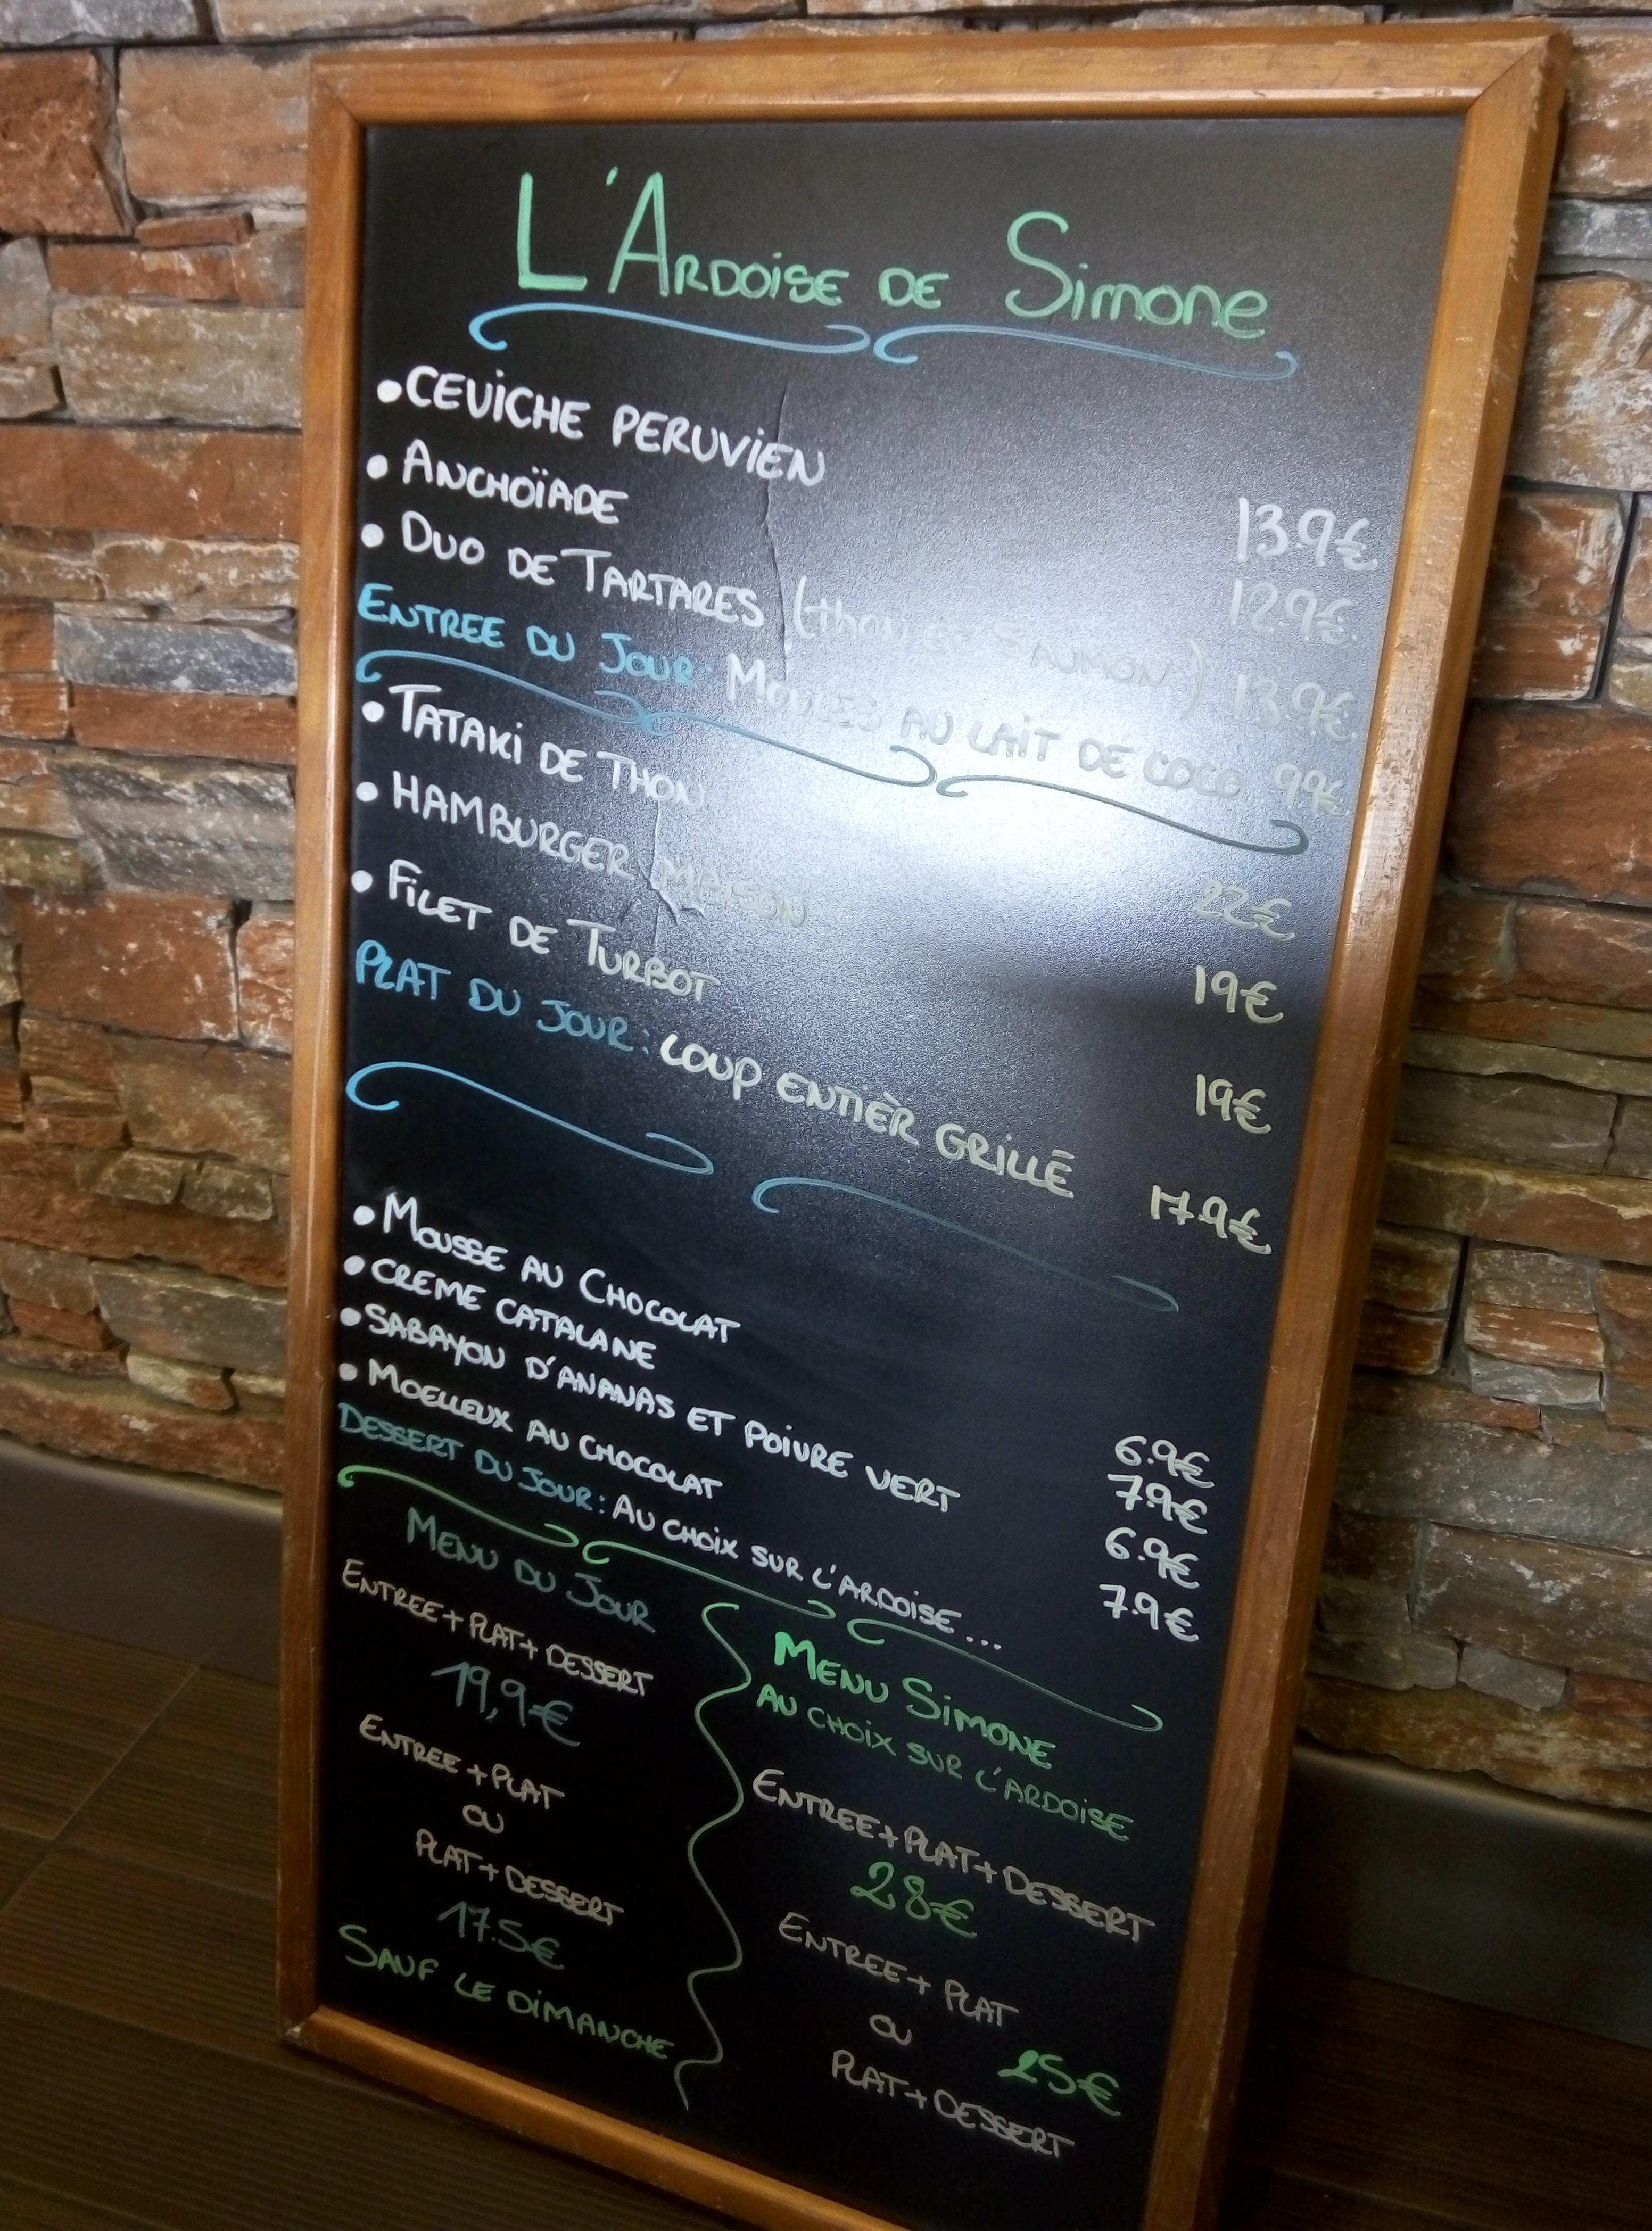 L'ARDOISE DE SIMONE
• CEVICHE PERUVIEN 13.9€
• ANCHOÏADE 12.9€
• DUO DE TARTARES (thon et SAUMON) 13.9€
ENTREE DU JOUR: MOULES AU LAIT DE COCO 9.9€
• TATAKI DE THON 22€
• HAMBURGER MAISON 19€
• FILET DE TURBOT 19€
PLAT DU JOUR: LOUP ENTIÈR GRILLÉ 17.9€
• MOUSSE AU CHOCOLAT 6.9€
• CREME CATALANE 7.9€
• SABAYON D'ANANAS ET POIVRE VERT 6.9€
• MOELLEUX AU CHOCOLAT 7.9€
DESSERT DU JOUR: AU CHOIX SUR L'ARDOISE...
MENU DU JOUR
ENTREE+PLAT+DESSERT
19,9€
ENTREE+PLAT
OU
PLAT+DESSERT
17.5€
SAUF LE DIMANCHE
MENU SIMONE
AU CHOIX SUR L'ARDOISE
ENTREE+PLAT+DESSERT
28€
ENTREE+PLAT
OU 25€
PLAT+DESSERT